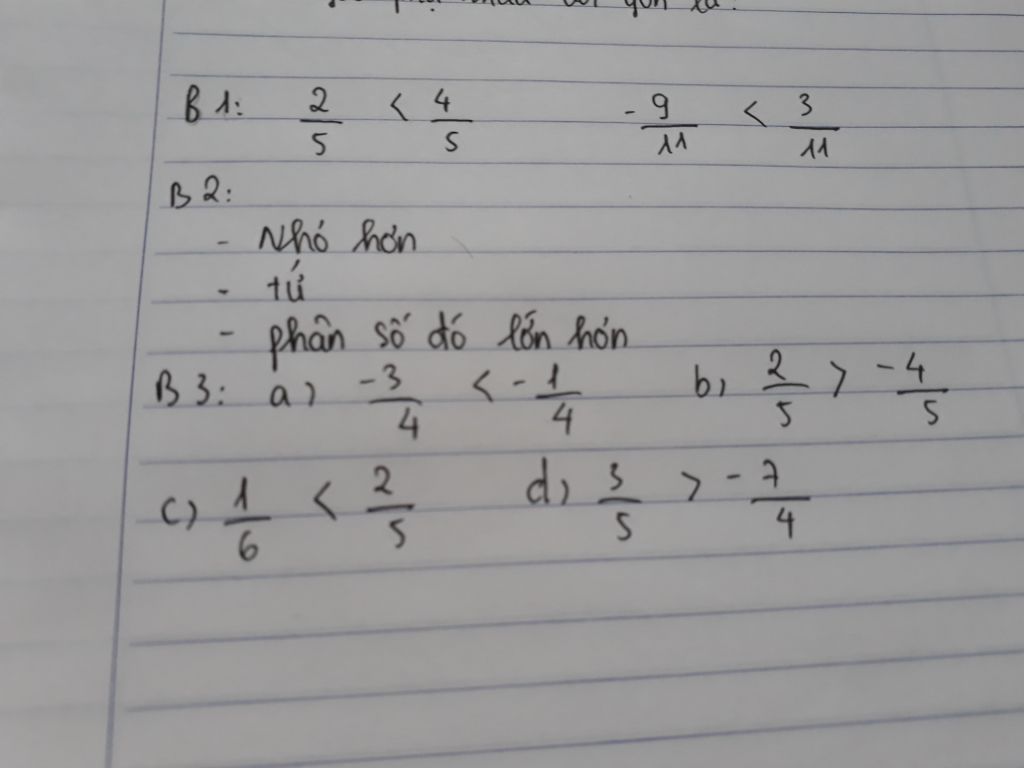 B1: 2/5 < 4/5 -9/11 < 3/11
B2:
- Nhỏ hơn
- tử
- phân số đó lớn hơn
B3: a) -3/4 < -1/4 b) 2/5 > -4/5
c) 1/6 < 2/5 d) 3/5 > -7/4